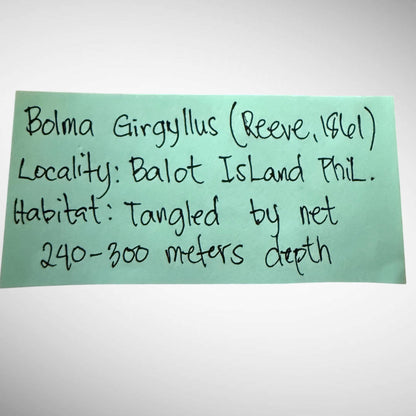 Bolma Girgyllus (Reeve, 1861)
Locality: Balot Island Phil.
Habitat: Tangled by net
240-300 meters depth